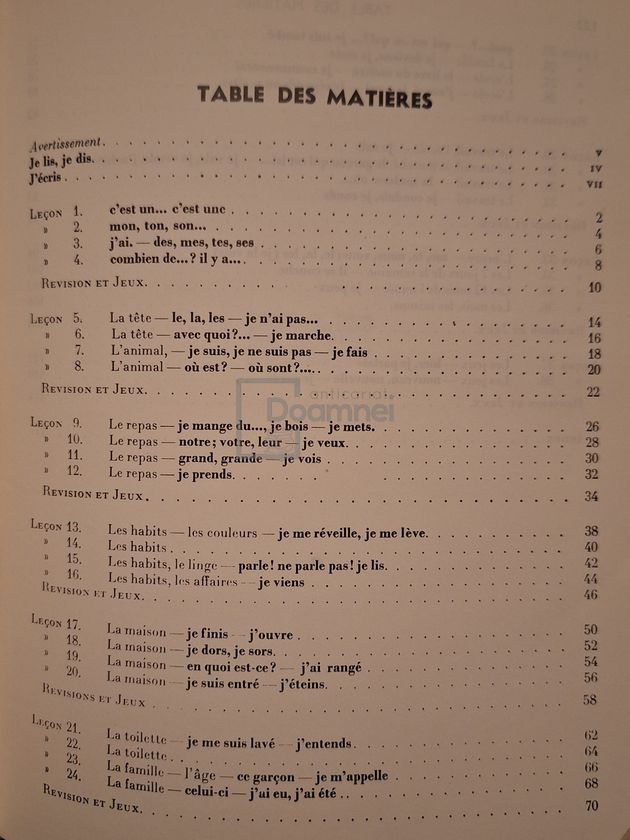 TABLE DES MATIÈRES
Avertissement. V
Je lis, je dis. IV
J'écris. VII
LEÇON 1. c'est un... c'est une. 2
» 2. mon, ton, son... 4
» 3. j'ai. — des, mes, tes, ses 6
» 4. combien de...? il y a.... 8
REVISION ET JEUX. 10
LEÇON 5. La tête — le, la, les — je n'ai pas... 14
» 6. La tête — avec quoi?... — je marche. 16
» 7. L'animal, — je suis, je ne suis pas — je fais 18
» 8. L'animal — où est? — où sont?.... 20
REVISION ET JEUX. 22
anticariat
Doamnei
LEÇON 9. Le repas — je mange du..., je bois — je mets. 26
» 10. Le repas — notre; votre, leur — je veux. 28
» 11. Le repas — grand, grande — je vois 30
» 12. Le repas — je prends. 32
REVISION ET JEUX. 34
LEÇON 13. Les habits — les couleurs — je me réveille, je me lève. 38
» 14. Les habits. 40
» 15. Les habits, le linge — parle! ne parle pas! je lis. 42
» 16. Les habits, les affaires — je viens 44
REVISION ET JEUX. 46
LEÇON 17. La maison — je finis — j'ouvre 50
» 18. La maison — je dors, je sors. 52
» 19. La maison — en quoi est-ce? — j'ai rangé 54
» 20. La maison — je suis entré — j'éteins. 56
REVISIONS ET JEUX 58
LEÇON 21. La toilette — je me suis lavé — j'entends. 62
» 22. La toilette. 64
» 23. La famille — l'âge — ce garçon — je m'appelle 66
» 24. La famille — celui-ci — j'ai eu, j'ai été.. 68
REVISION ET JEUX. 70